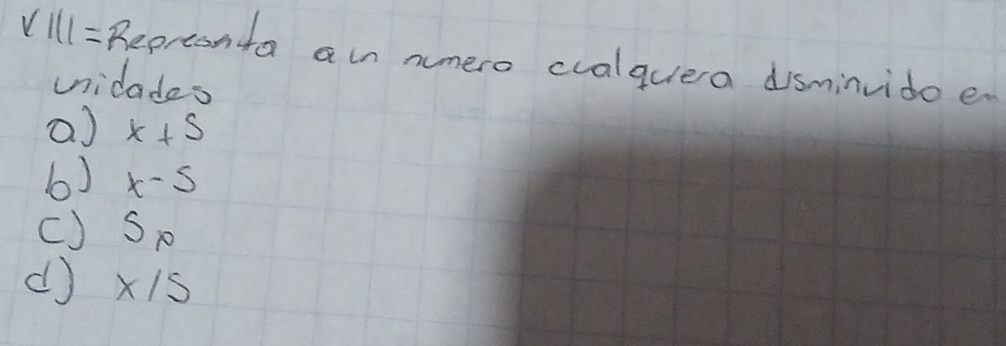 VIII = Represnta a un numero cualquiera disminuido en
unidades
a) x + 5
b) x - 5
c) 5p
d) x / 5